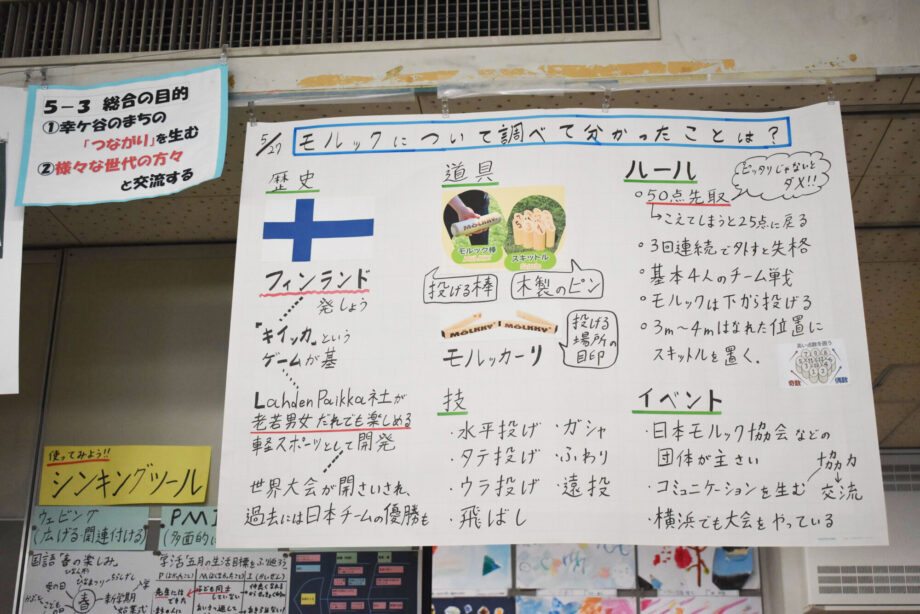 5-3 総合の目的
①幸ケ谷のまちの
「つながり」を生む
②様々な世代の方々
と交流する
5/27
モルックについて調べて分かったことは?
歴史
フィンランド
発しょう
"キイッカ"という
ゲームが基
Lahden Paikka社が
老若男女だれでも楽しめる
軽スポーツとして開発
世界大会が開さいされ、
過去には日本チームの優勝も
道具
MÖLKKY
モルック棒
スキットル
投げる棒
木製のピン
MÖLKKY
MÖLKKY
モルッカーリ
投げる
場所の
目印
技
・水平投げ ・ガシャ
・タテ投げ ・ふわり
・ウラ投げ ・遠投
・飛ばし
ルール
ピッタリじゃないと
ダメ!!
○50点先取
こえてしまうと25点に戻る
○3回連続で外すと失格
○基本4人のチーム戦
○モルックは下から投げる
○3m〜4mはなれた位置に
スキットルを置く.
高い点数を狙う
奇数
偶数
イベント
・日本モルック協会などの
団体が主さい
・コミュニケーションを生む
協力
交流
・横浜でも大会をやっている
使ってみよう!!
シンキングツール
ウェビング
(広げる・関連付ける)
PMI
(多面的に
国語 春の楽しみ
学活 五月の生活目標をふり返ろう
春
入学
新学期